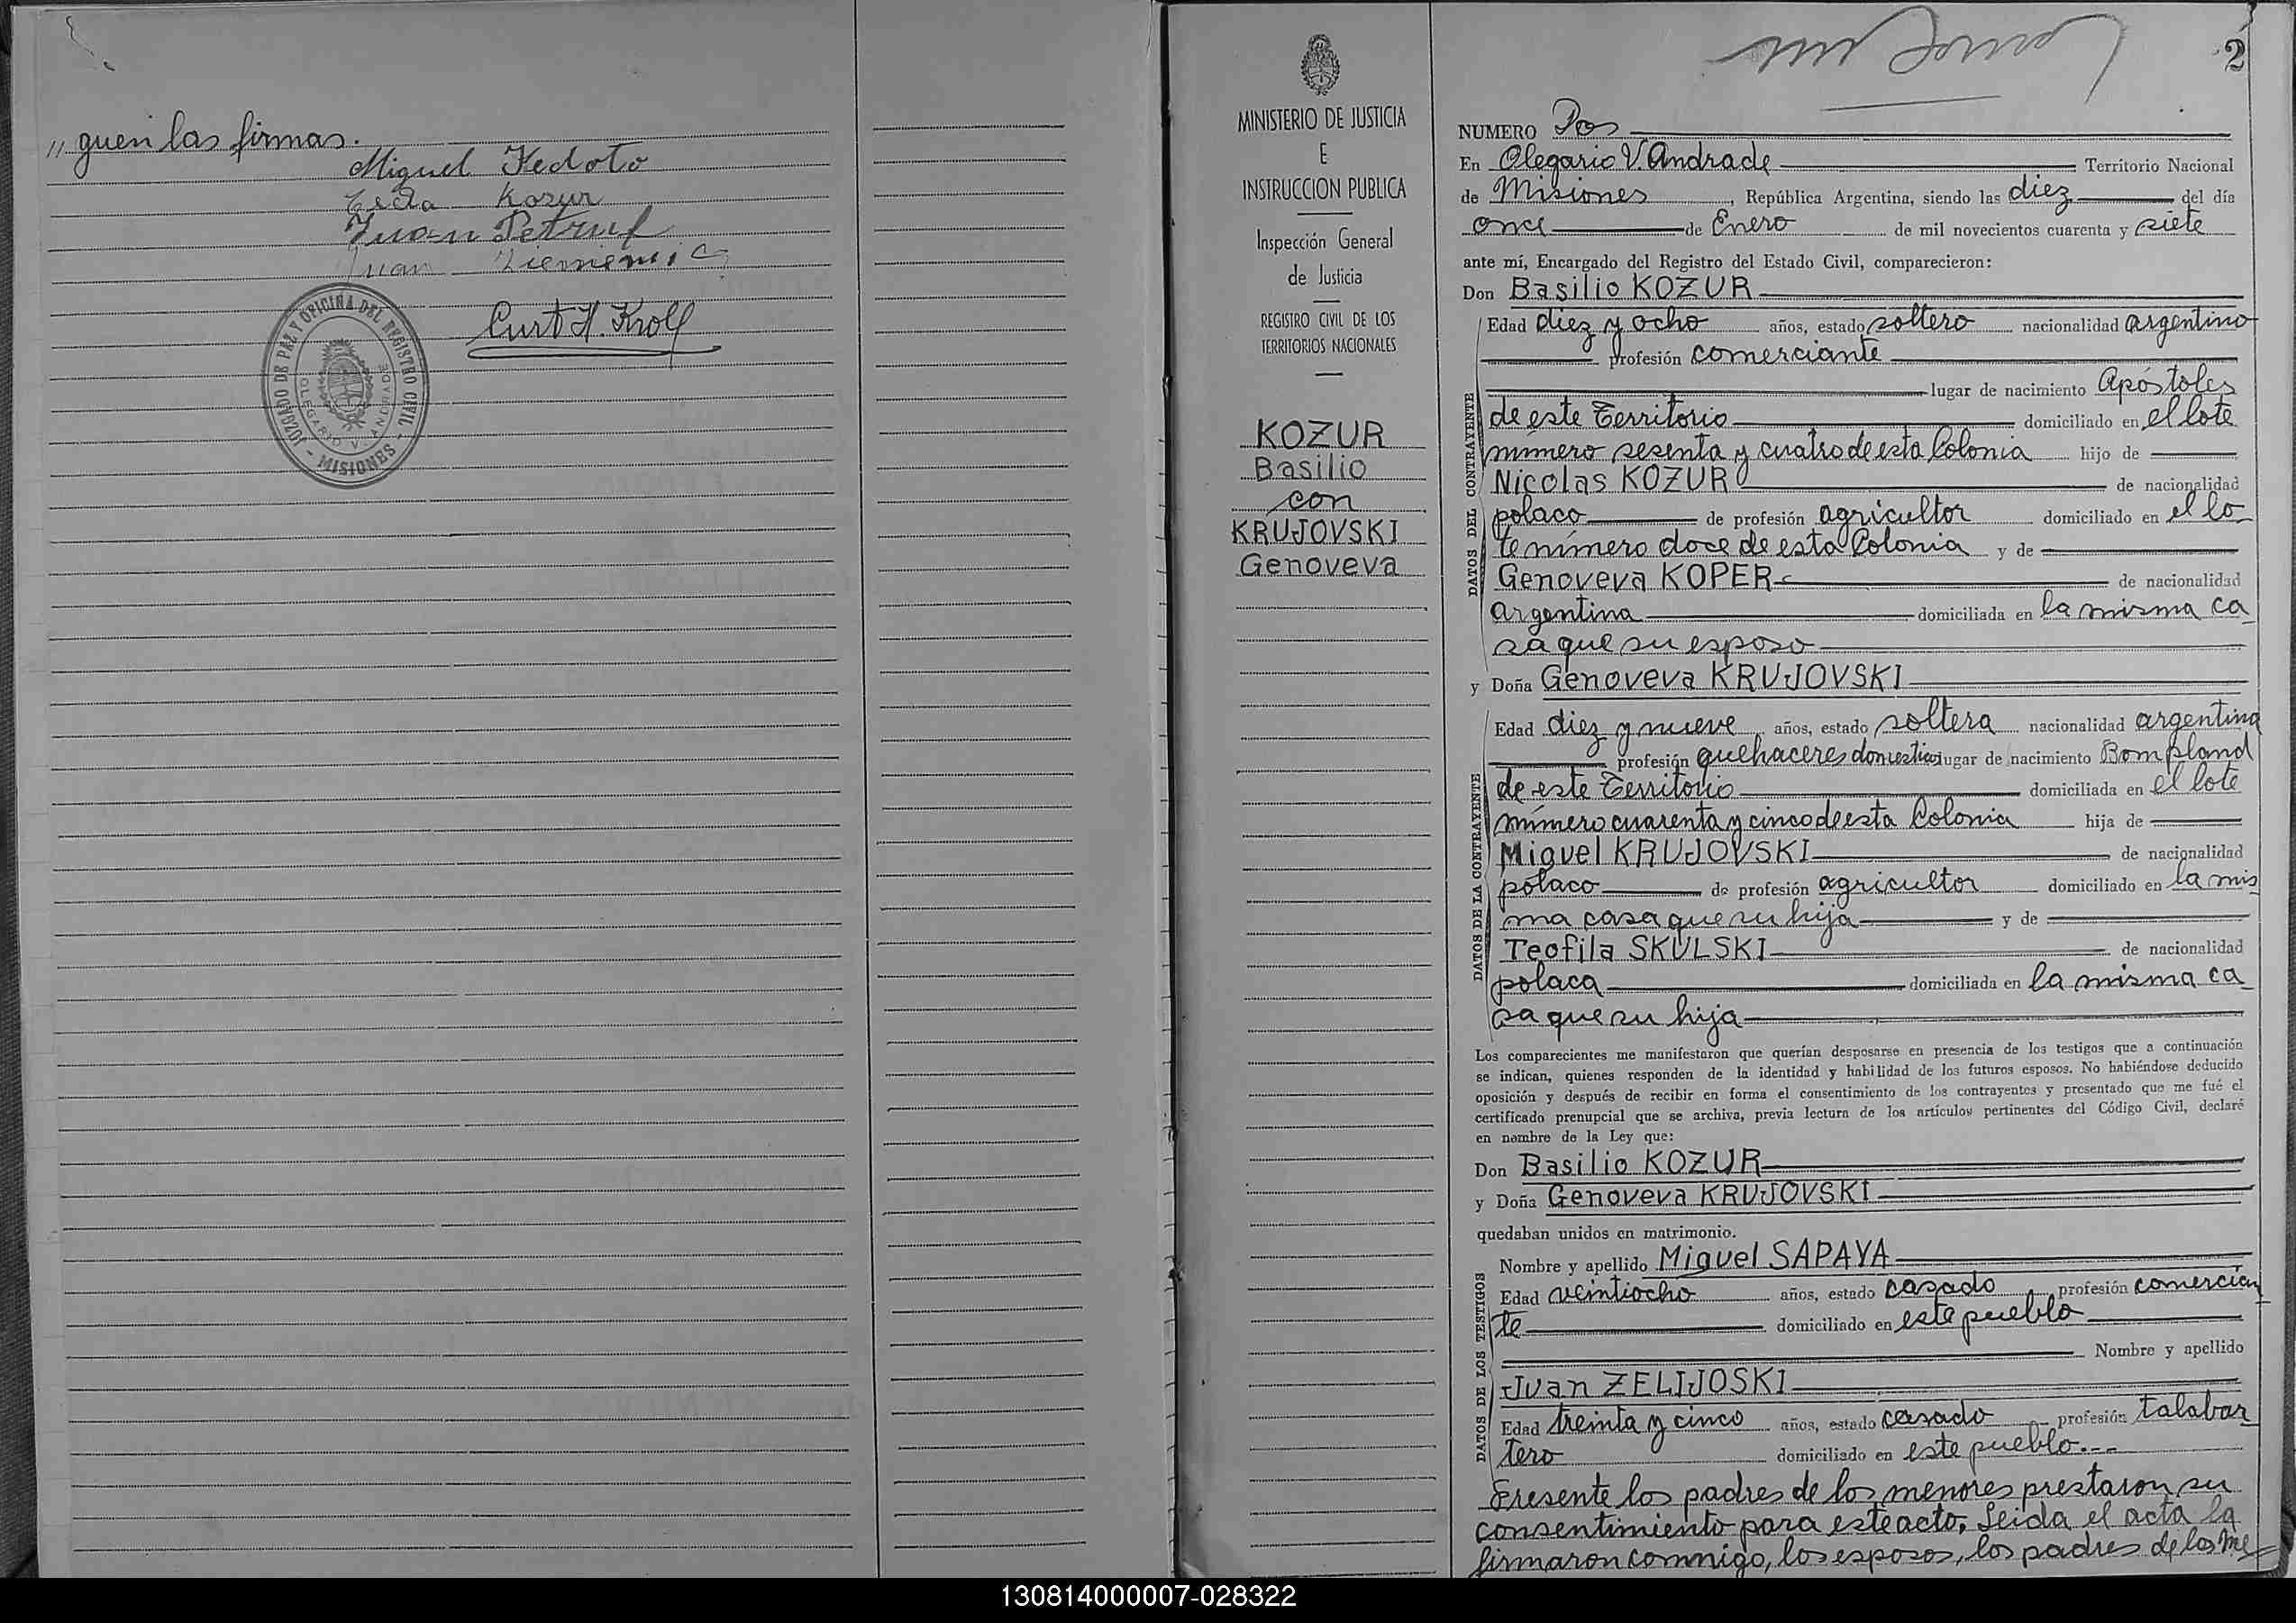 " guen las firmas.
Miguel Fedoto
Kozur
Juan
Juan
Curt H. Kroll
JUZGADO DE PAZ Y OFICINA DEL REGISTRO CIVIL
OLEGARIO V. ANDRADE
- MISIONES -
MINISTERIO DE JUSTICIA
E
INSTRUCCION PUBLICA
Inspección General
de Justicia
REGISTRO CIVIL DE LOS
TERRITORIOS NACIONALES
KOZUR
Basilio
con
KRUJOVSKI
Genoveva
2
NUMERO Dos
En Olegario V. Andrade Territorio Nacional
de Misiones, República Argentina, siendo las diez del día
once de Enero de mil novecientos cuarenta y siete
ante mí, Encargado del Registro del Estado Civil, comparecieron:
Don Basilio KOZUR
DATOS DEL CONTRAYENTE
Edad diez y ocho años, estado soltero nacionalidad argentino
profesión comerciante
lugar de nacimiento Apóstoles
de este Territorio domiciliado en el lote
número sesenta y cuatro de esta Colonia hijo de
Nicolas KOZUR de nacionalidad
polaco de profesión agricultor domiciliado en el lo
te número doce de esta Colonia y de
Genoveva KOPER de nacionalidad
argentina domiciliada en la misma ca
sa que su esposo
y Doña Genoveva KRUJOVSKI
DATOS DE LA CONTRAYENTE
Edad diez y nueve años, estado soltera nacionalidad argentina
profesión quehaceres domesticos lugar de nacimiento Bompland
de este Territorio domiciliada en el lote
número cuarenta y cinco de esta Colonia hija de
Miguel KRUJOVSKI de nacionalidad
polaco de profesión agricultor domiciliado en la mis
ma casa que su hija y de
Teofila SKULSKI de nacionalidad
polaca domiciliada en la misma ca
sa que su hija
Los comparecientes me manifestaron que querían desposarse en presencia de los testigos que a continuación
se indican, quienes responden de la identidad y habilidad de los futuros esposos. No habiéndose deducido
oposición y después de recibir en forma el consentimiento de los contrayentes y presentado que me fué el
certificado prenupcial que se archiva, previa lectura de los artículos pertinentes del Código Civil, declaré
en nombre de la Ley que:
Don Basilio KOZUR
y Doña Genoveva KRUJOVSKI
quedaban unidos en matrimonio.
DATOS DE LOS TESTIGOS
Nombre y apellido Miguel SAPAYA
Edad veintiocho años, estado casado profesión comercian
te domiciliado en este pueblo
Nombre y apellido
Juan ZELIJOSKI
Edad treinta y cinco años, estado casado profesión talabar
tero domiciliado en este pueblo.--
Presente los padres de los menores prestaron su
consentimiento para este acto, Leida el acta la
firmaron conmigo, los esposos, los padres de los me
130814000007-028322